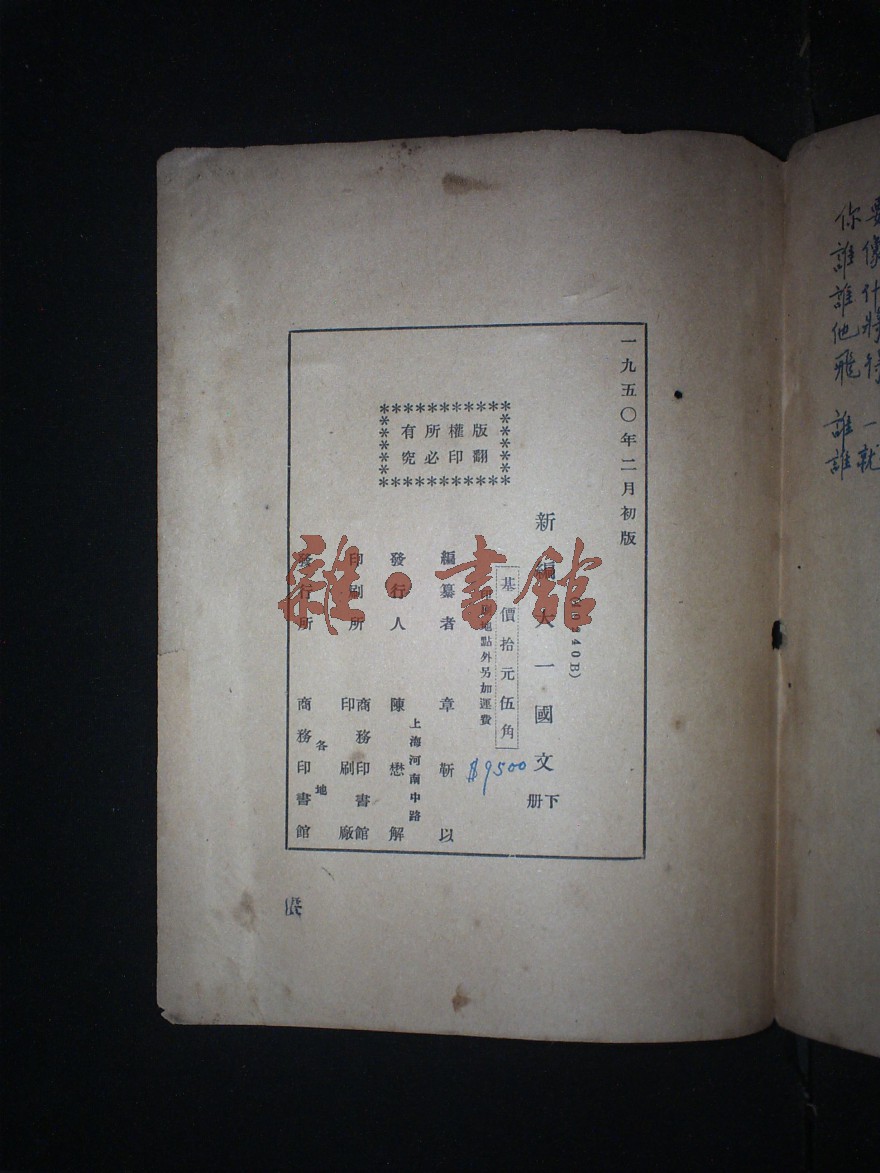 一九五〇年二月初版
版權所有
翻印必究
新編大一國文
下册
基價拾元伍角
印刷地點外另加運費
$9500
編纂者 章靳以
發行人 陳懋解
上海河南中路
印刷所 商務印書館
印刷廠
發行所 商務印書館
各地
雜·書館
你
誰
誰
他
飛
誰
誰